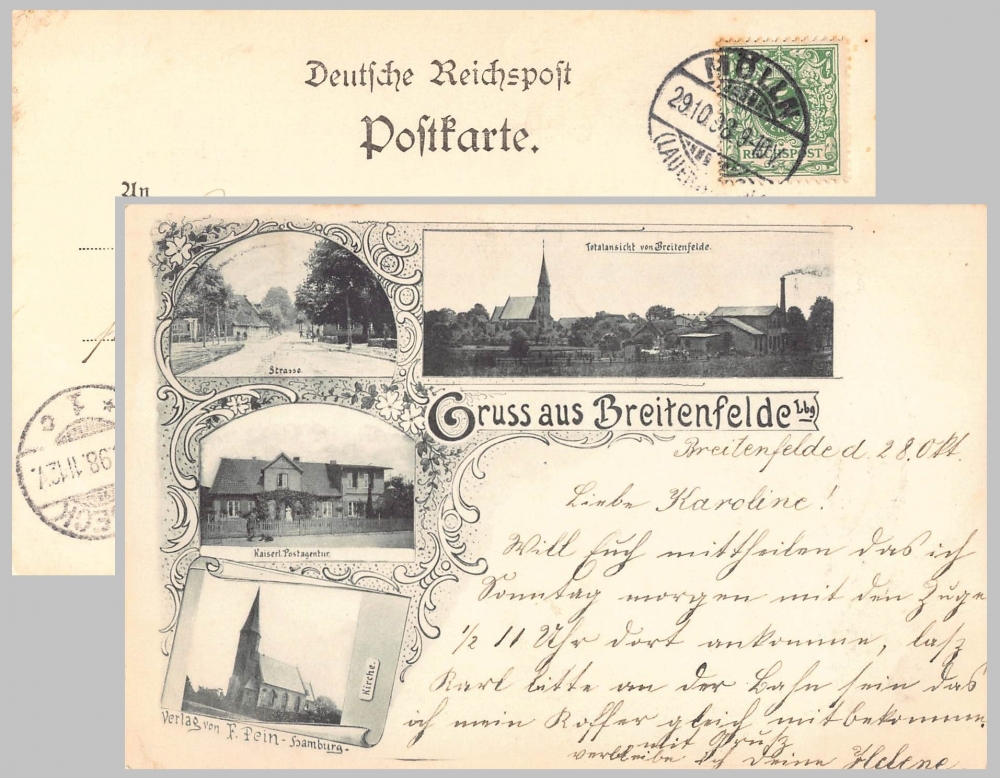 Deutsche Reichspost
Postkarte.
An
MÖLLN
29.10.98. 9-10 V.
REICHSPOST
Totalansicht von Breitenfelde.
Strasse
Gruss aus Breitenfelde Lbg
Kaiserl. Postagentur.
Kirche.
Verlag von F. Pein - Hamburg -
Breitenfelde d. 28. Okt.
Liebe Karoline!
Will Euch mittheilen das ich
Sonntag morgen mit den Zuge
1/2 11 Uhr dort ankomme, lasz
Karl bitte an der Bahn sein das
ich mein Koffer gleich mitbekomme.
mit Gruß
verbleibe ich Deine Helene